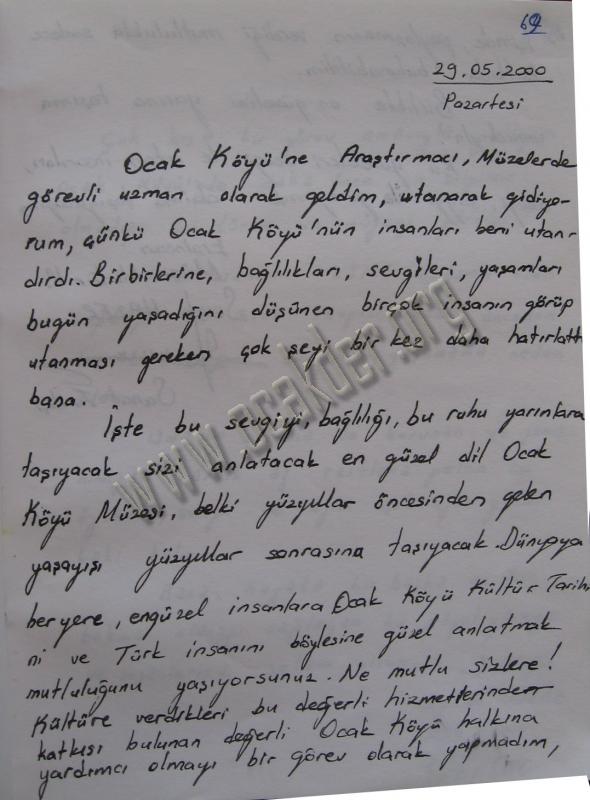 69
29.05.2000
Pazartesi
Ocak Köyü'ne Araştırmacı, Müzelerde
görevli uzman olarak geldim, utanarak gidiyo-
rum, çünkü Ocak Köyü'nün insanları beni utan-
dırdı. Birbirlerine, bağlılıkları, sevgileri, yaşamları
bugün yaşadığını düşünen birçok insanın görüp
utanması gereken çok şeyi bir kez daha hatırlattı
bana.
İşte bu sevgiyi, bağlılığı, bu ruhu yarınlara
taşıyacak sizi anlatacak en güzel dil Ocak
Köyü Müzesi, belki yüzyıllar öncesinden gelen
yaşayışı yüzyıllar sonrasına taşıyacak. Dünyaya
heryere, engüzel insanlara Ocak Köyü Kültür Tarihi
ni ve Türk insanını böylesine güzel anlatmak
mutluluğunu yaşıyorsunuz. Ne mutlu sizlere!
Kültüre verdikleri bu değerli hizmetlerinden
katkısı bulunan değerli Ocak Köyü halkına
yardımcı olmayı bir görev olarak yapmadım,
www.ocakder.org